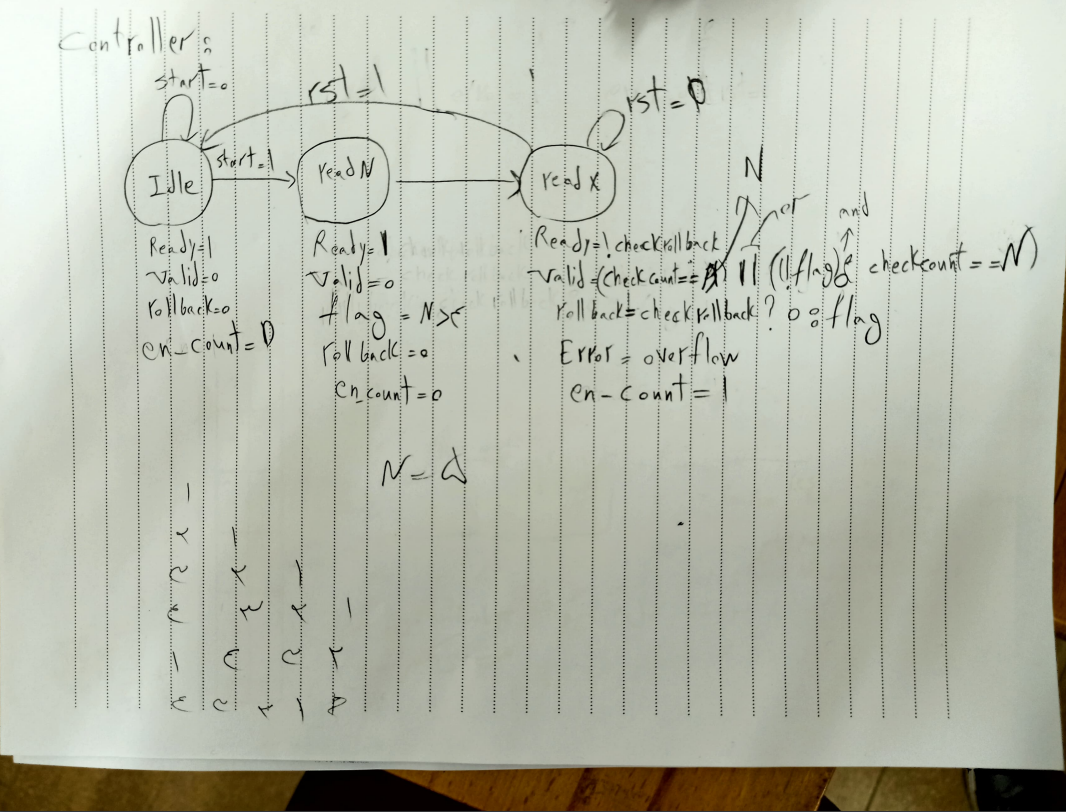 Controller:
start=0
rst=1
rst=0
start=1
Idle
read N
read x
N
or
and
Ready=1
Valid=0
rollback=0
en_count=0
Ready=1
Valid=0
flag = N>۴
rollback=0
en_count=0
Ready=!checkrollback
Valid=(checkcount== || (!flag) & checkcount==N)
rollback=checkrollback ? 0 : flag
Error = overflow
en-count = 1
N = ۵
۱
۲ ۱
۳ ۲ ۱
۴ ۳ ۲ ۱
۱ ۴ ۳ ۲
۴ ۳ ۲ ۱